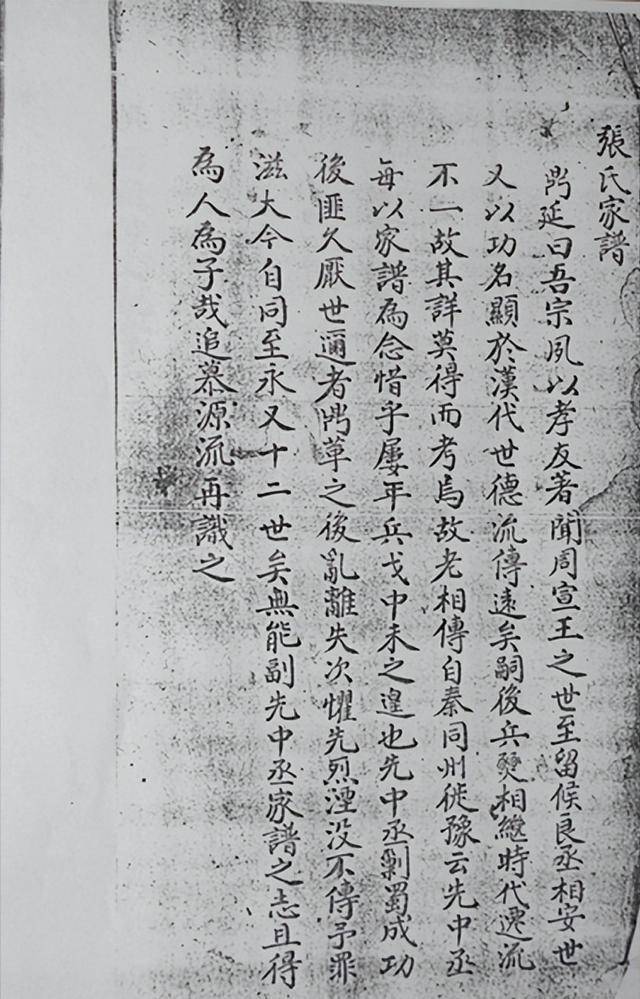 張氏家譜
鼎延曰吾宗夙以孝友著聞周宣王之世至留候良丞相安世
又以功名顯於漢代世德流傳遠矣嗣後兵燹相繼時代遷流
不一故其詳莫得而考焉故老相傳自秦同州徙豫云先中丞
每以家譜為念惜乎屢年兵戈中未之遑也先中丞剿蜀成功
後匪久厭世邇者鼎革之後亂離失次懼先烈湮没不傳予罪
滋大今自同至永又十二世矣無能副先中丞家譜之志且得
為人為子哉追慕源流再識之